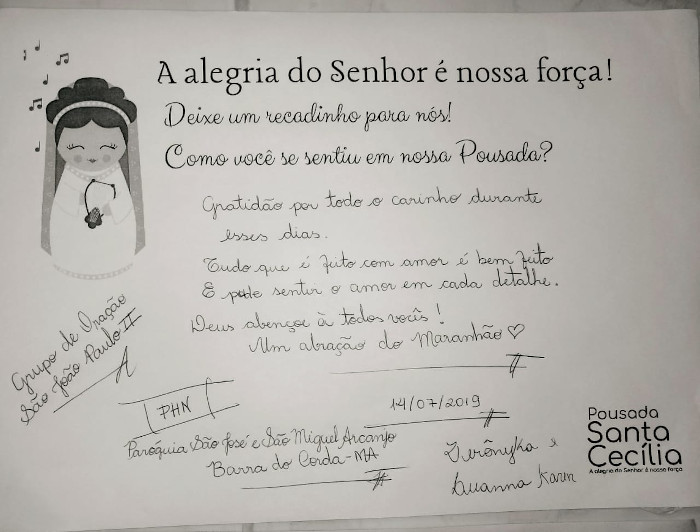 A alegria do Senhor é nossa força!
Deixe um recadinho para nós!
Como você se sentiu em nossa Pousada?
Gratidão por todo o carinho durante
esses dias.
Tudo que é feito com amor é bem feito
E pude sentir o amor em cada detalhe.
Deus abençoe à todos vocês!
Um abração do Maranhão ♡
Grupo de Oração
São João Paulo II
PHN
14/07/2019
Paróquia São José e São Miguel Arcanjo
Barra do Corda-MA
Verônyka e
Luanna Karen
Pousada
Santa
Cecília
A alegria do Senhor é nossa força